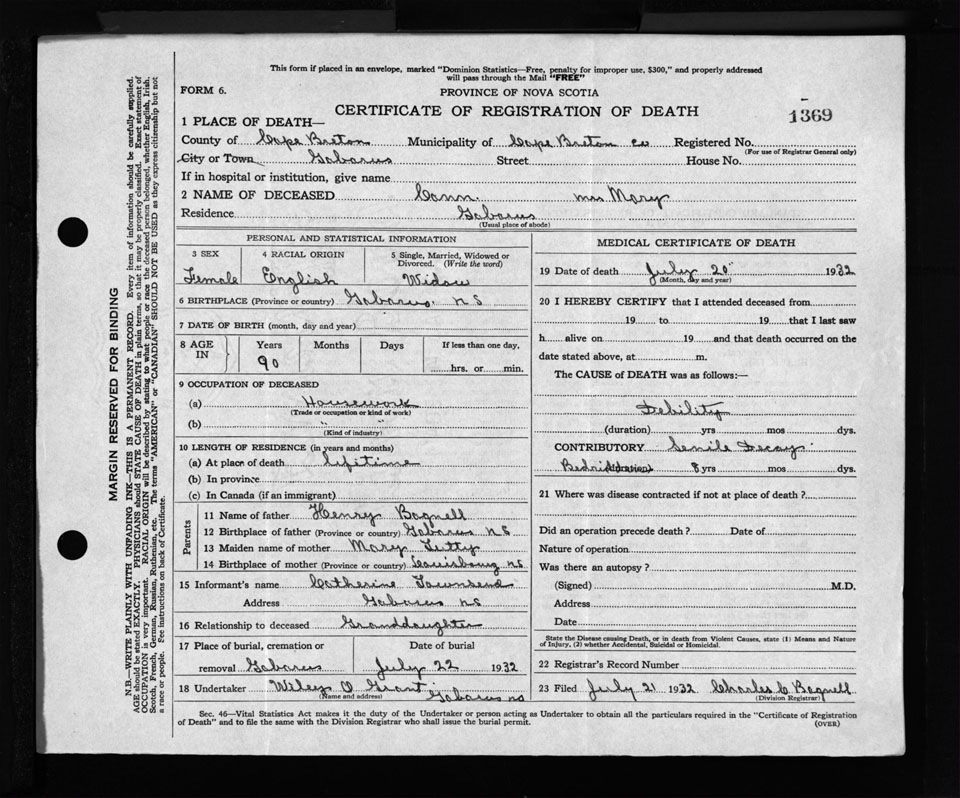 This form if placed in an envelope, marked "Dominion Statistics—Free, penalty for improper use, $300," and properly addressed
will pass through the Mail "FREE"
FORM 6.
PROVINCE OF NOVA SCOTIA
CERTIFICATE OF REGISTRATION OF DEATH
1369
1 PLACE OF DEATH—
County of Cape Breton Municipality of Cape Breton co Registered No.
(For use of Registrar General only)
City or Town Gabarus Street House No.
If in hospital or institution, give name
2 NAME OF DECEASED Conn. mrs Mary
Residence Gabarus
(Usual place of abode)
PERSONAL AND STATISTICAL INFORMATION
3 SEX 4 RACIAL ORIGIN 5 Single, Married, Widowed or
Divorced. (Write the word)
Female English Widow
6 BIRTHPLACE (Province or country) Gabarus. n S
7 DATE OF BIRTH (month, day and year)
8 AGE IN Years Months Days If less than one day,
90 hrs. or min.
9 OCCUPATION OF DECEASED
(a) Housework
(Trade or occupation or kind of work)
(b) " "
(Kind of industry)
10 LENGTH OF RESIDENCE (in years and months)
(a) At place of death Lifetime
(b) In province
(c) In Canada (if an immigrant)
Parents
11 Name of father Henry Bagnell
12 Birthplace of father (Province or country) Gabarus N.S
13 Maiden name of mother Mary Tutty
14 Birthplace of mother (Province or country) Louisbourg ns
15 Informant's name Catherine Townsend
Address Gabarus ns
16 Relationship to deceased Granddaughter
17 Place of burial, cremation or Date of burial
removal Gabarus July 22 1932
18 Undertaker Wiley O Grant Gabarus ns
(Name and address)
MEDICAL CERTIFICATE OF DEATH
19 Date of death July 20" 1932
(Month, day and year)
20 I HEREBY CERTIFY that I attended deceased from
19 to 19 that I last saw
h alive on 19 and that death occurred on the
date stated above, at m.
The CAUSE of DEATH was as follows:—
Debility
(duration) yrs mos dys.
CONTRIBUTORY Senile Decay
Bedrid (duration) 8 yrs mos dys.
21 Where was disease contracted if not at place of death?
Did an operation precede death? Date of
Nature of operation
Was there an autopsy?
(Signed) M.D.
Address
Date
State the Disease causing Death, or in death from Violent Causes, state (1) Means and Nature
of Injury, (2) whether Accidental, Suicidal or Homicidal.
22 Registrar's Record Number
23 Filed July 21 1932 Charles C Bagnell
(Division Registrar)
Sec. 46—Vital Statistics Act makes it the duty of the Undertaker or person acting as Undertaker to obtain all the particulars required in the "Certificate of Registration
of Death" and to file the same with the Division Registrar who shall issue the burial permit.
(OVER)
MARGIN RESERVED FOR BINDING
N.B.—WRITE PLAINLY WITH UNFADING INK—THIS IS A PERMANENT RECORD. Every item of information should be carefully supplied.
AGE should be stated EXACTLY. PHYSICIANS should STATE CAUSE OF DEATH in plain terms, so that it may be properly classified. Exact statement of
OCCUPATION is very important. RACIAL ORIGIN will be described by stating to what people or race the deceased person belonged, whether English, Irish,
Scotch, French, German, Russian, Ruthenian, etc. The terms "AMERICAN" or "CANADIAN" SHOULD NOT BE USED as they express citizenship but not
a race or people. Fee instructions on back of Certificate.